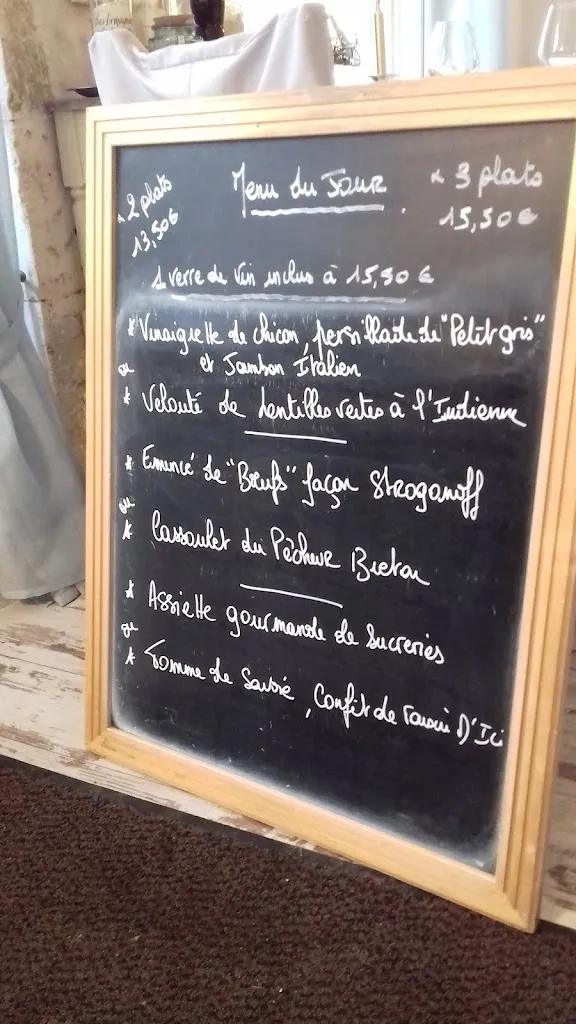 x 2 plats
13,50€
Menu du Jour
x 3 plats
15,50€
1 verre de vin inclus à 15,50 €
* Vinaigrette de chicon, persillade de "Petit gris"
et Jambon Italien
ou
* Velouté de Lentilles vertes à l'Indienne
* Emincé de "Bœufs" façon Stroganoff
ou
* Cassoulet du Pêcheur Breton
* Assiette gourmande de Sucreries
ou
* Tomme de Savoie, Confit de raisin D'Ici